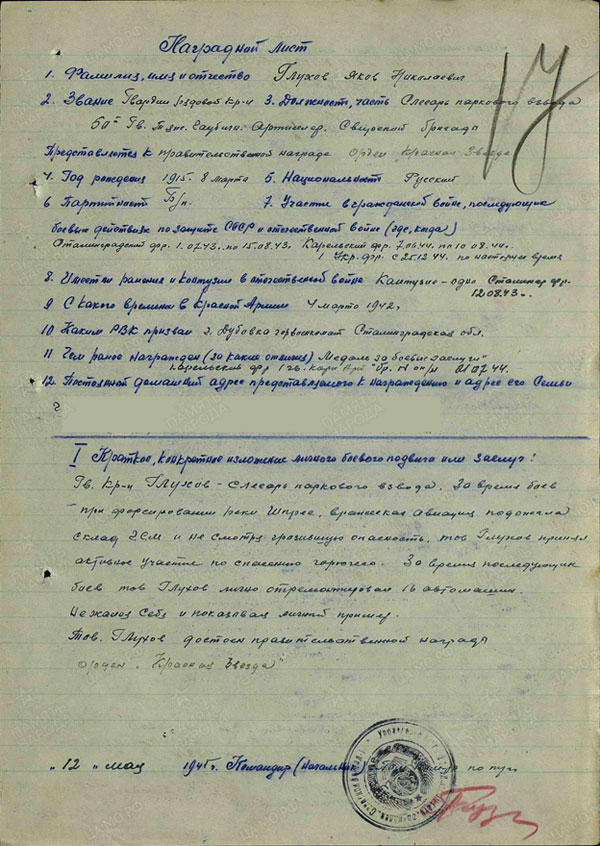 Наградной лист
17
1. Фамилия, имя и отчество Глухов Яков Николаевич
2. Звание Гвардии рядовой кр-ц 3. Должность, часть Слесарь паркового взвода
Гв. Артиллер. Свирской бригады
Представляется к правительственной награде Орден Красная Звезда
4. Год рождения 1915. 8 марта 5. Национальность Русский
6 Партийность Б/п. 7. Участие в гражданской войне, последующих
боевых действиях по защите СССР и отечественной войне (где, когда)
Сталинградский фр. 1.07.43. по 15.08.43. Карельский фр. 7.06.44. по 10.08.44.
1 Укр. фр. с 25.12.44. по настоящее время
8. Имеет ли ранения и контузии в отечественной войне Контузию - одно Сталингр. фр.
12.08.43.
9 С какого времени в Красной Армии 4 марта 1942г
10 Каким РВК призван г. Дубовка горвоенкомат Сталинградская обл.
11 Чем ранее награжден (за какие отличия) Медаль "За боевые заслуги"
Карельский фр 21.07.44.
12. Постоянный домашний адрес представляемого к награждению и адрес его семьи
г
I Краткое, конкретное изложение личного боевого подвига или заслуг:
Гв. кр-ц Глухов - слесарь паркового взвода. За время боев
при форсировании реки Шпрее, вражеская авиация подожгла
склад ГСМ и не смотря грозившую опасность, тов Глухов принял
активное участие по спасению горючего. За время последующих
боев тов Глухов лично отремонтировал 16 автомашин.
Не жалея себя и показывая личный пример.
Тов. Глухов достоин правительственной награды
орден "Красная Звезда"
"12" мая 1945г. Командир (начальник)